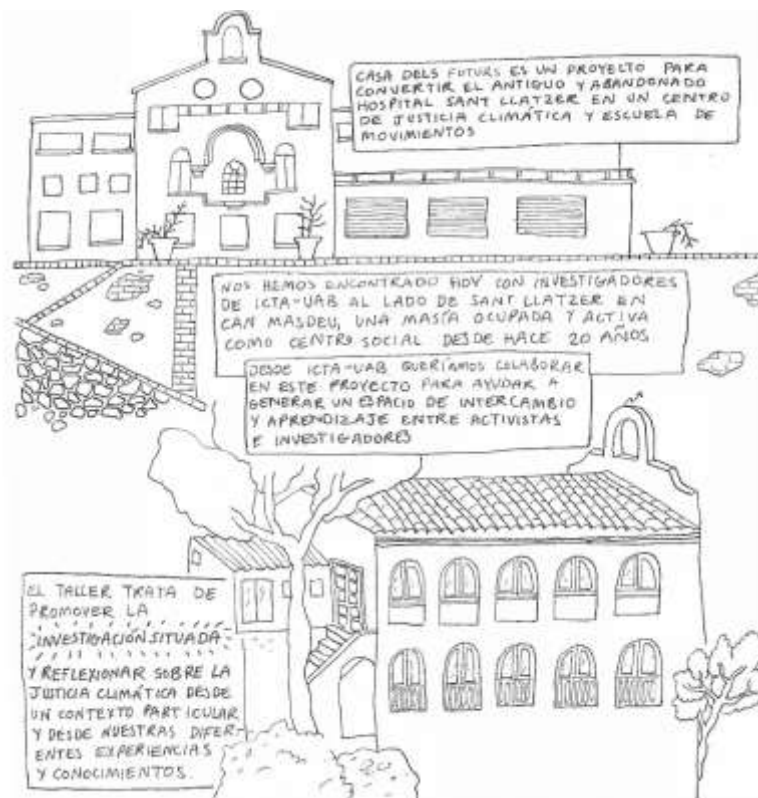 CASA DELS FUTURS ES UN PROYECTO PARA
CONVERTIR EL ANTIGUO Y ABANDONADO
HOSPITAL SANT LLATZER EN UN CENTRO
DE JUSTICIA CLIMÁTICA Y ESCUELA DE
MOVIMIENTOS
NOS HEMOS ENCONTRADO HOY CON INVESTIGADORES
DE ICTA-UAB AL LADO DE SANT LLATZER EN
CAN MASDEU, UNA MASÍA OCUPADA Y ACTIVA
COMO CENTRO SOCIAL DESDE HACE 20 AÑOS
DESDE ICTA-UAB QUERÍAMOS COLABORAR
EN ESTE PROYECTO PARA AYUDAR A
GENERAR UN ESPACIO DE INTERCAMBIO
Y APRENDIZAJE ENTRE ACTIVISTAS
E INVESTIGADORES
EL TALLER TRATA DE
PROMOVER LA
INVESTIGACIÓN SITUADA
Y REFLEXIONAR SOBRE LA
JUSTICIA CLIMÁTICA DESDE
UN CONTEXTO PARTICULAR
Y DESDE NUESTRAS DIFER-
ENTES EXPERIENCIAS
Y CONOCIMIENTOS.